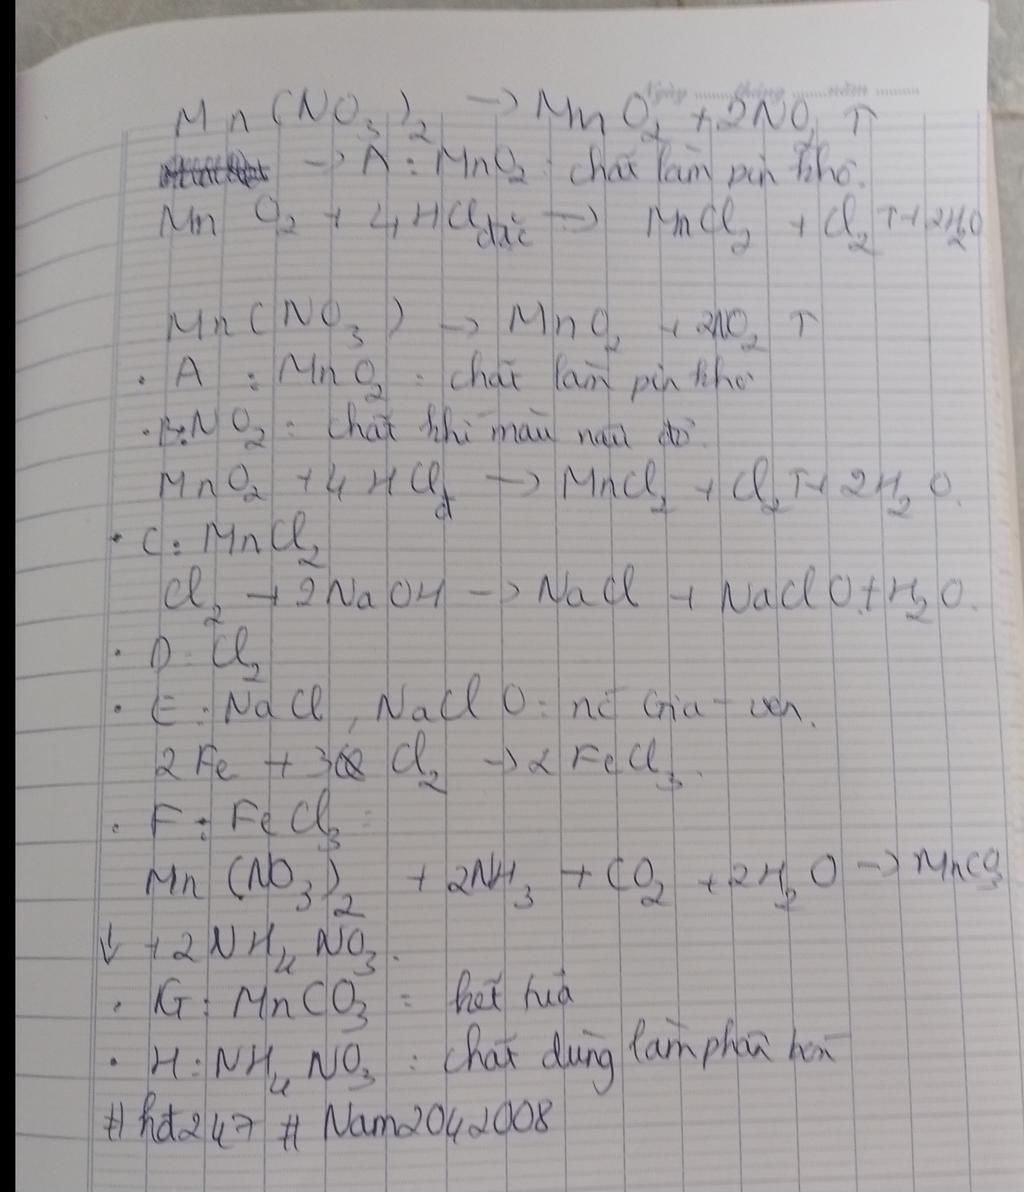 Ngày ........ tháng ........ năm ........
Mn(NO₃)₂ → MnO₂ + 2NO₂ ↑
→ A : MnO₂ : chất làm pin khô.
MnO₂ + 4HCl đặc → MnCl₂ + Cl₂ ↑ + 2H₂O
Mn(NO₃) → MnO₂ + 2NO₂ ↑
. A : MnO₂ : chất làm pin khô
. B: NO₂ : chất khí màu nâu đỏ.
MnO₂ + 4HCl đ → MnCl₂ + Cl₂ ↑ + 2H₂O.
. C : MnCl₂
Cl₂ + 2NaOH → NaCl + NaClO + H₂O.
. D : Cl₂
. E : NaCl, NaClO : nc Gia-ven.
2Fe + 3Cl₂ → 2FeCl₃.
. F : FeCl₃ :
Mn(NO₃)₂ + 2NH₃ + CO₂ + 2H₂O → MnCO₃
↓ + 2NH₄NO₃.
. G : MnCO₃ : kết tủa
. H : NH₄NO₃ : chất dùng làm phân bón
#hđ247 # Nam2042008